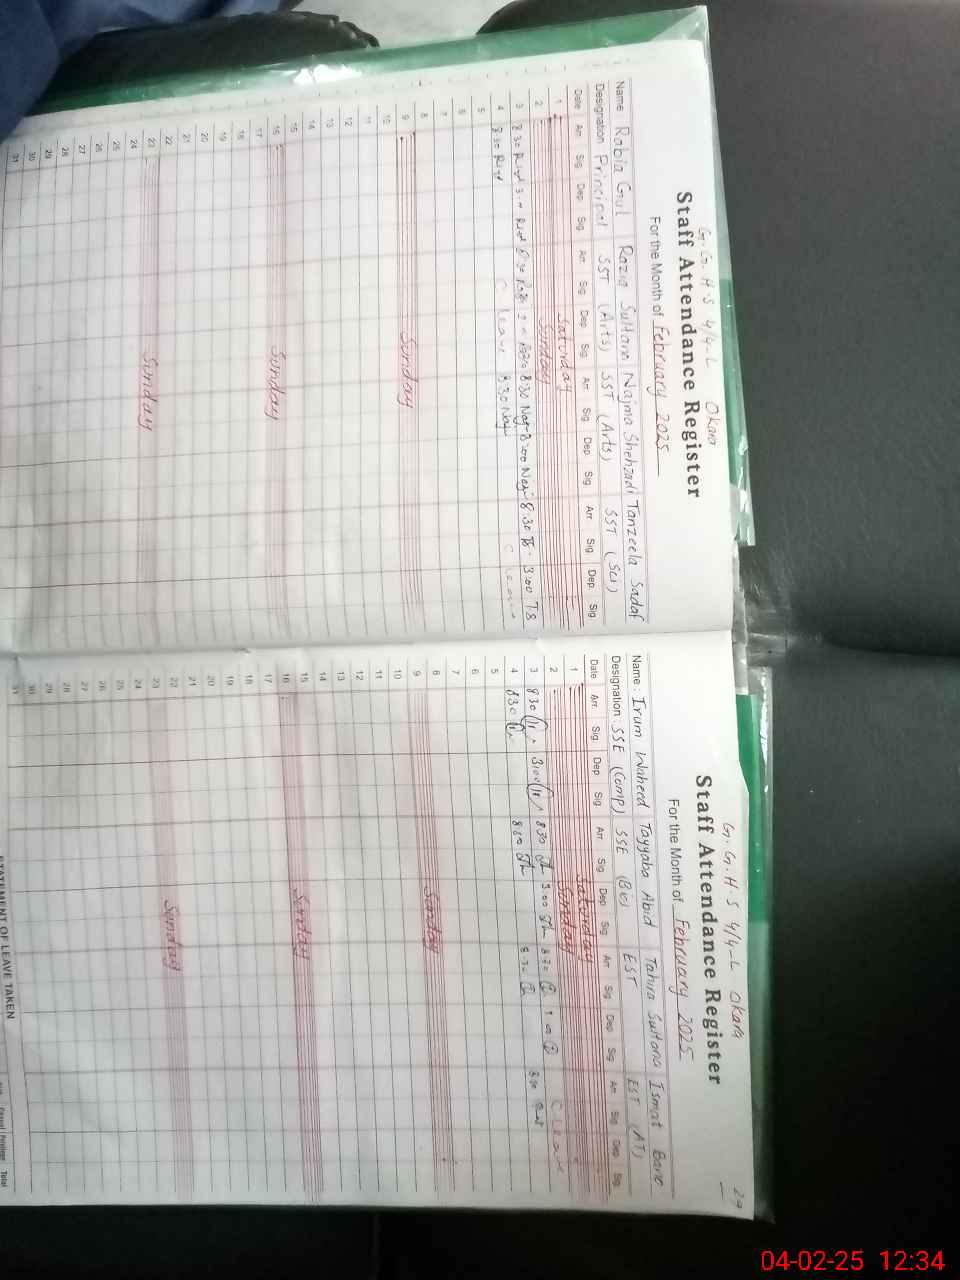 G.G.H.S 4/4-L Okara
Staff Attendance Register
For the Month of February 2025
Name Rabia Gul Razia Sultana Najma Shehzadi Tanzeela Sadaf
Designation Principal SST (Arts) SST (Arts) SST (Sci)
Date Arr. Sig Dep Sig Arr Sig Dep Sig Arr Sig Dep Sig Arr Sig Dep Sig
1 Saturday
2 Sunday
3 8:30 8:30 8:30 3:00 8:30 3:00 T.S
4 8:30 C Leave 8:30 C Leave
5
6
7
8
9 Sunday
10
11
12
13
14
15
16 Sunday
17
18
19
20
21
22
23 Sunday
24
25
26
27
28
29
30
31
G.G.H.S 4/4-L Okara
29
Staff Attendance Register
For the Month of February 2025
Name: Irum Waheed Tayyaba Abid Tahira Sultana Ismat Bano
Designation: SSE (Comp) SSE (Bio) EST EST (AT)
Date Arr. Sig Dep Sig Arr Sig Dep Sig Arr Sig Dep Sig Arr Sig Dep Sig
1 Saturday
2 Sunday
3 8:30 3:00 8:30 3:00 8:30 C Leave
4 8:30 8:30 8:30
5
6
7
8
9 Sunday
10
11
12
13
14
15
16 Sunday
17
18
19
20
21
22
23 Sunday
24
25
26
27
28
29
30
31
STATEMENT OF LEAVE TAKEN
Casual Privilege Total
04-02-25 12:34